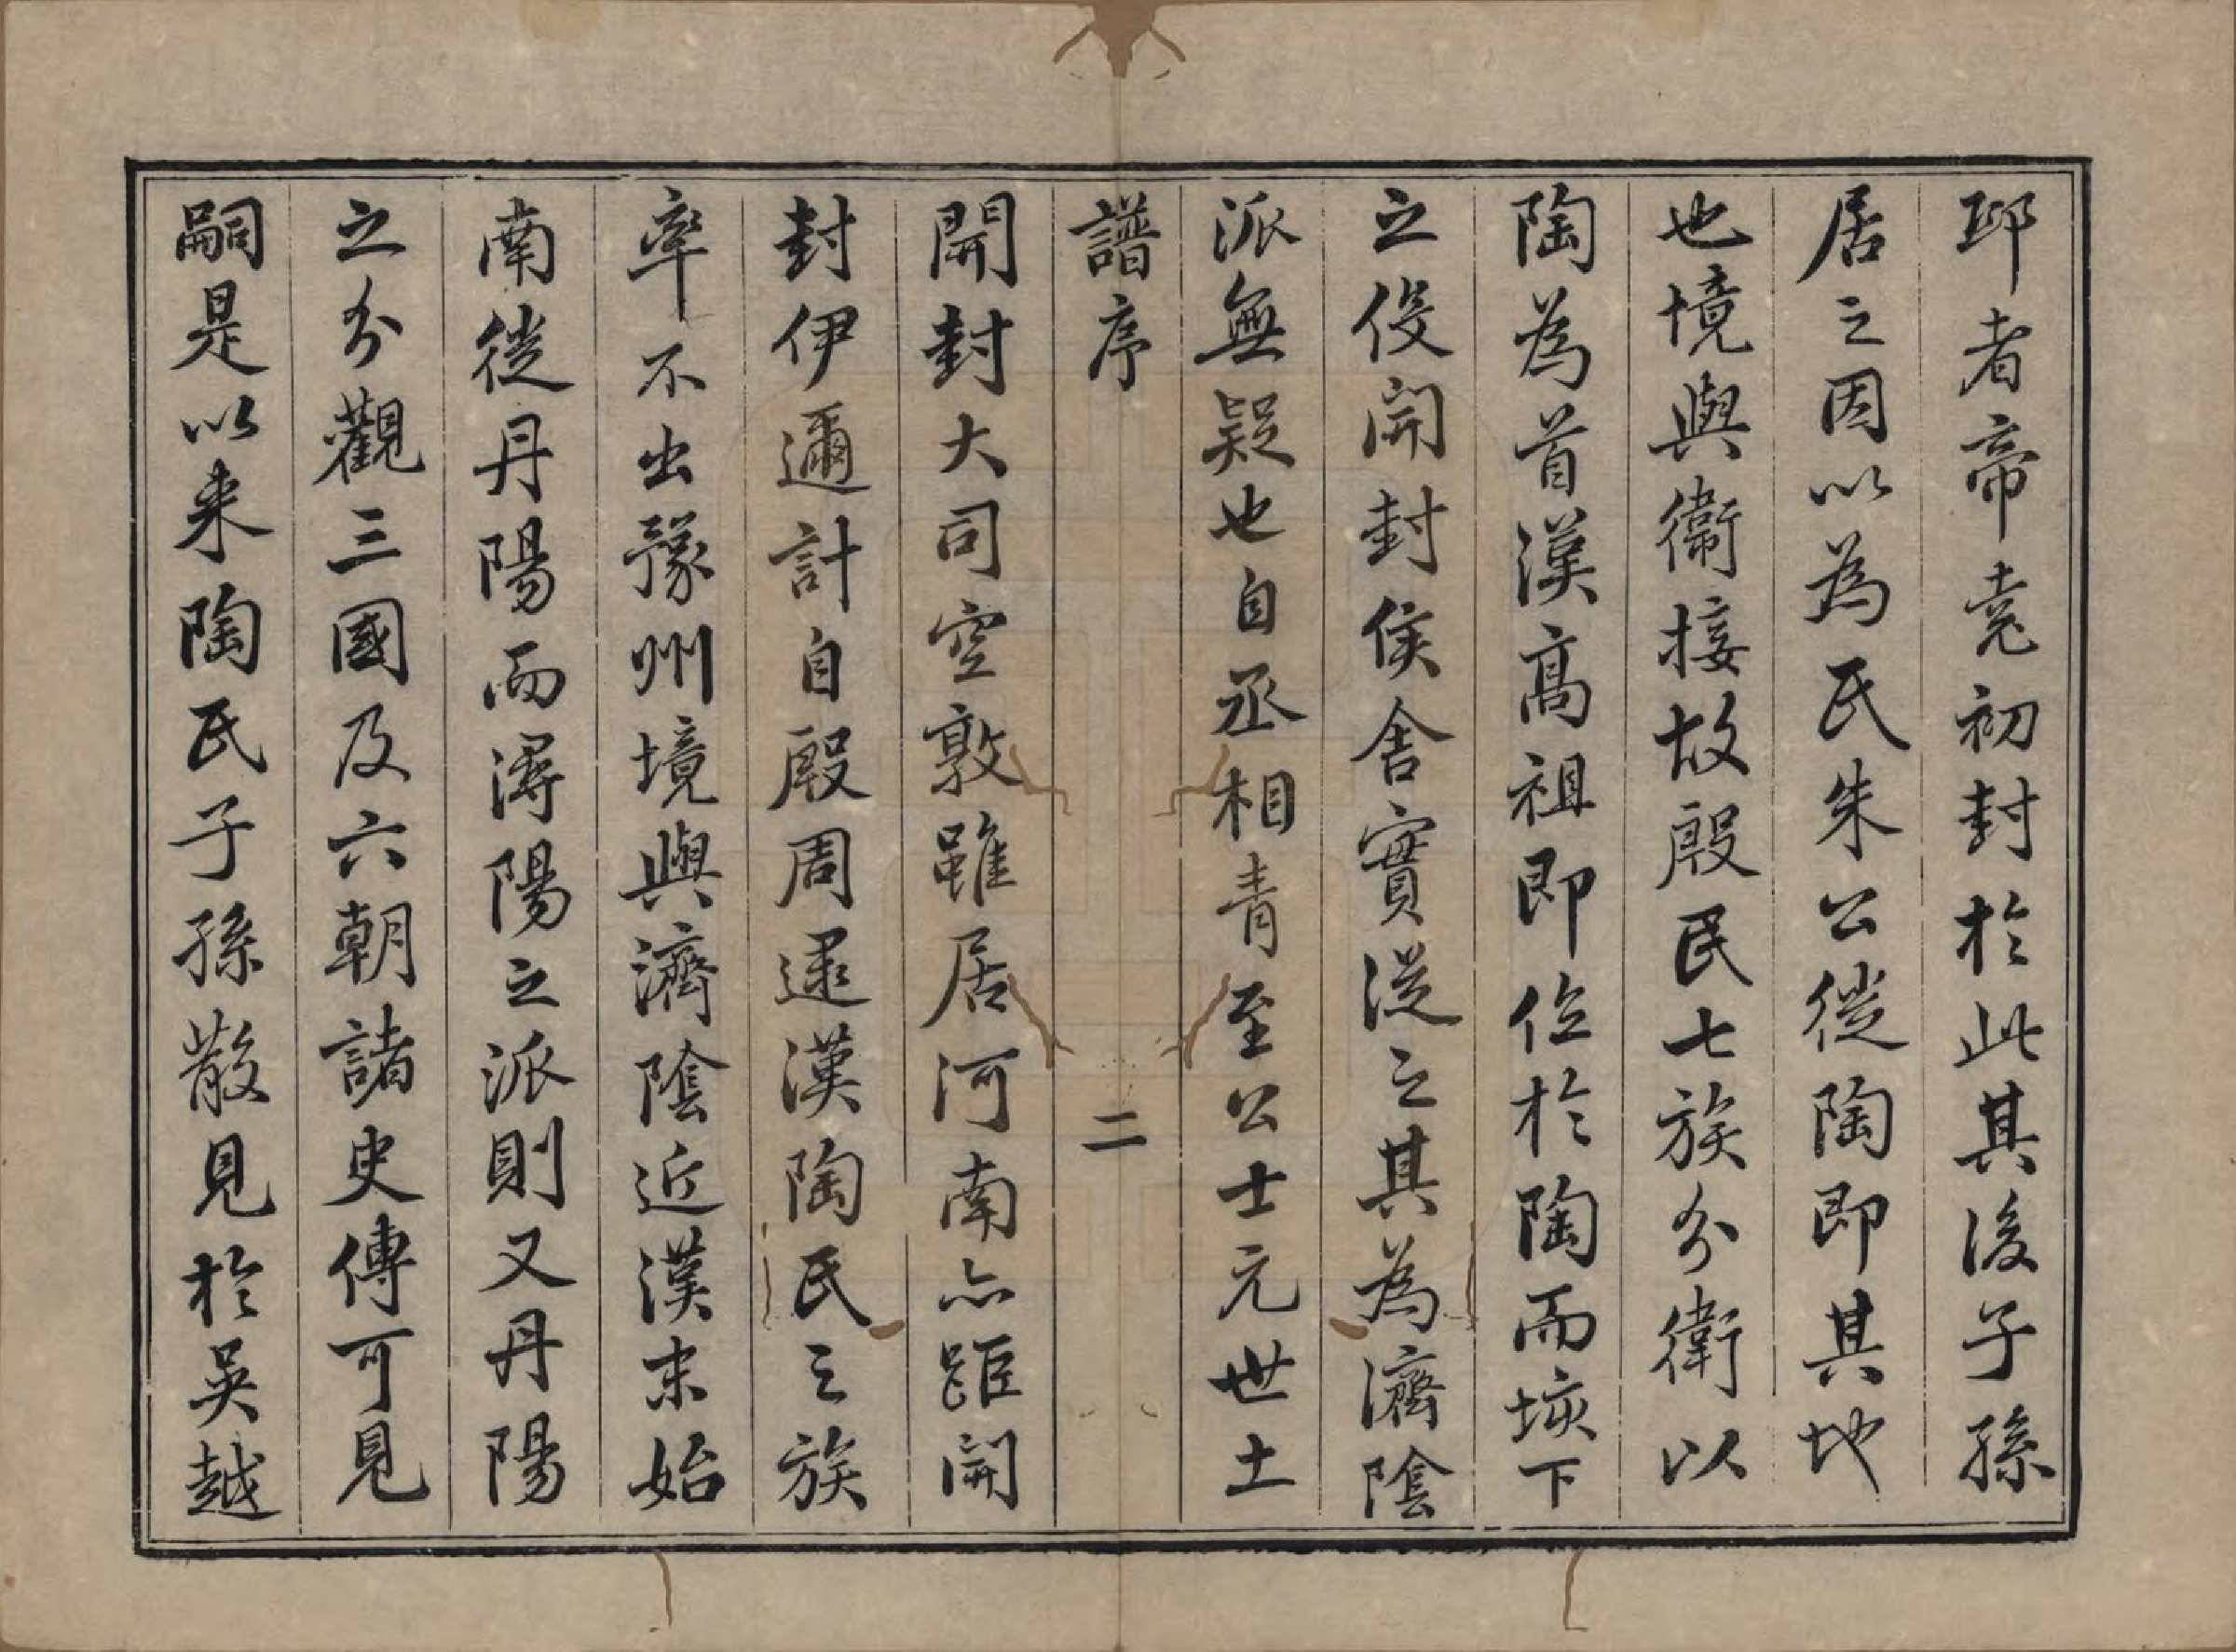 邱者帝堯初封於此其後子孫
居之因以為氏朱公徙陶即其地
也境與衛接故殷民七族分衛以
陶為首漢髙祖即位於陶而垓下
之役開封侯舍實從之其為濟陰
派無疑也自丞相青至公士元世土
譜序 二
開封大司空敦雖居河南亦距開
封伊邇計自殷周逮漢陶氏之族
率不出豫州境與濟陰近漢末始
南徙丹陽而潯陽之派則又丹陽
之分觀三國及六朝諸史傳可見
嗣是以来陶氏子孫散見於吳越